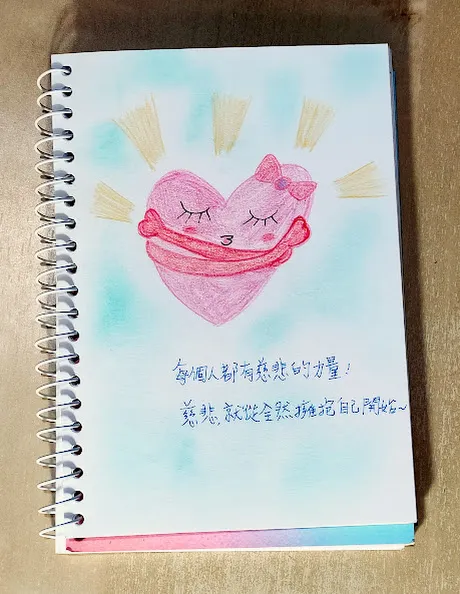 每個人都有慈悲的力量!
慈悲,就從全然擁抱自己開始~